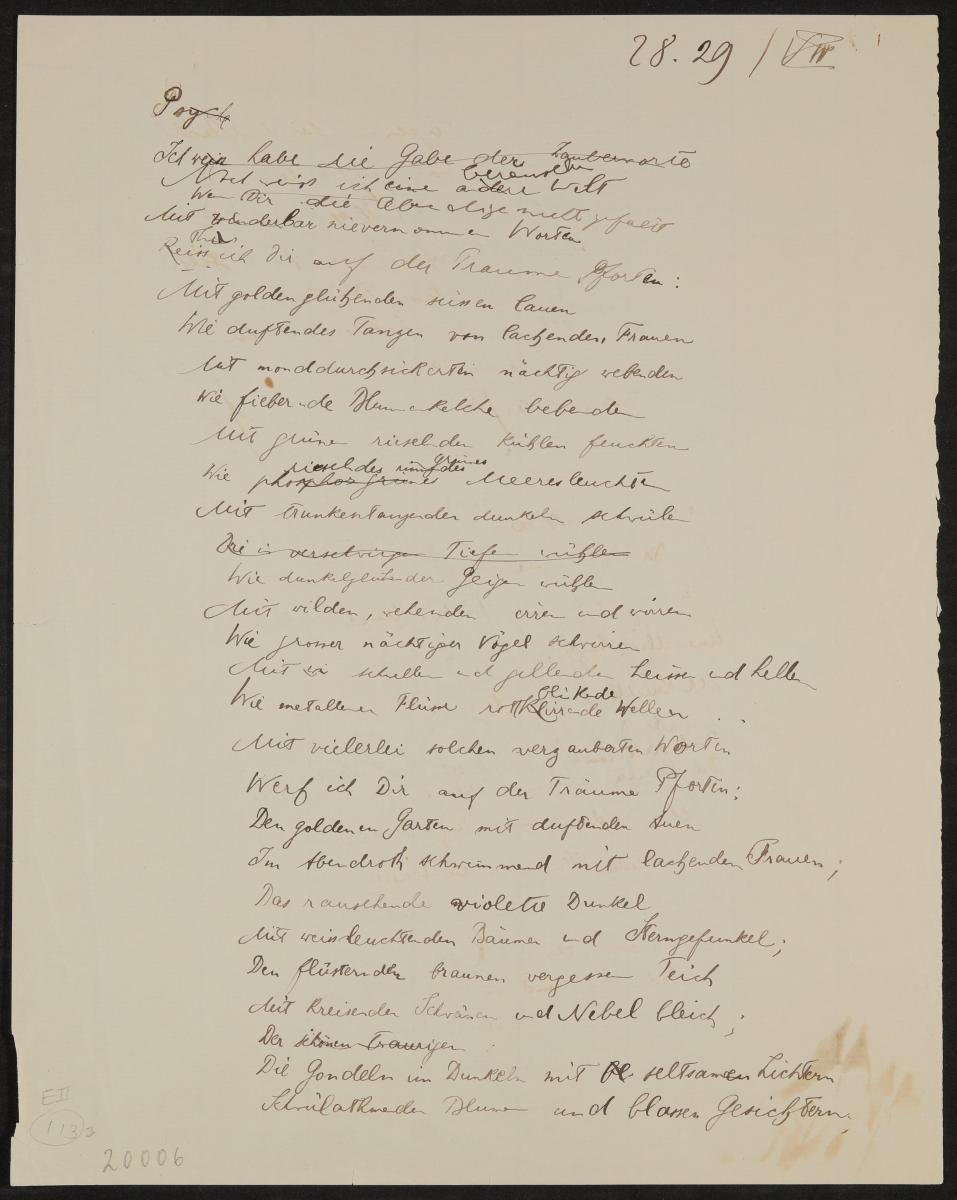 28. 29 / VIII
Psych
Ich weiss habe die Gabe der Zauberworte
berenvollen
Noch weiss ich eine andere Welt
Wenn Dir die lebendige nicht gefällt
Mit wunderbar nievernommenen Worten
Thu
Reiss ich dir auf der Träume Pforten:
Mit goldenglühenden süssen lauen
Wie duftendes Tanzen von lachenden Frauen
Mit monddurchsickerten nächtig webenden
Wie fiebernde Blumenkelche bebenden
Mit grünen rieselnden kühlen feuchten
rieselndes grünes
Wie phosphorgrünes Meeresleuchten
Mit trunkentanzenden dunkeln schwülen
Die in verschwiegn Tiefen wühlen
Wie dunkelglühender Geigen wühlen
Mit wilden, wehenden irren und wirren
Wie grosser nächtiger Vögel schwirren
Mit schrillen und gellenden heissen und hellen
blinkende
Wie metallener Flüsse rott klirrende Wellen . .
Mit vielerlei solchen verzauberten Worten
Werf ich Dir auf der Träume Pforten:
Den goldenen Garten mit duftenden Auen
Im Abendroth schwimmend mit lachenden Frauen;
Das rauschende violette Dunkel
Mit weissleuchtenden Bäumen und Sterngefunkel;
Den flüsternden braunen vergessenen Teich
Mit kreisenden Schwänen und Nebel bleich;
Der schönen Traurigen
Die Gondeln im Dunkeln mit seltsamen Lichtern
Schwülathmenden Blumen und blassen Gesichtern;
E II
113
3
20006